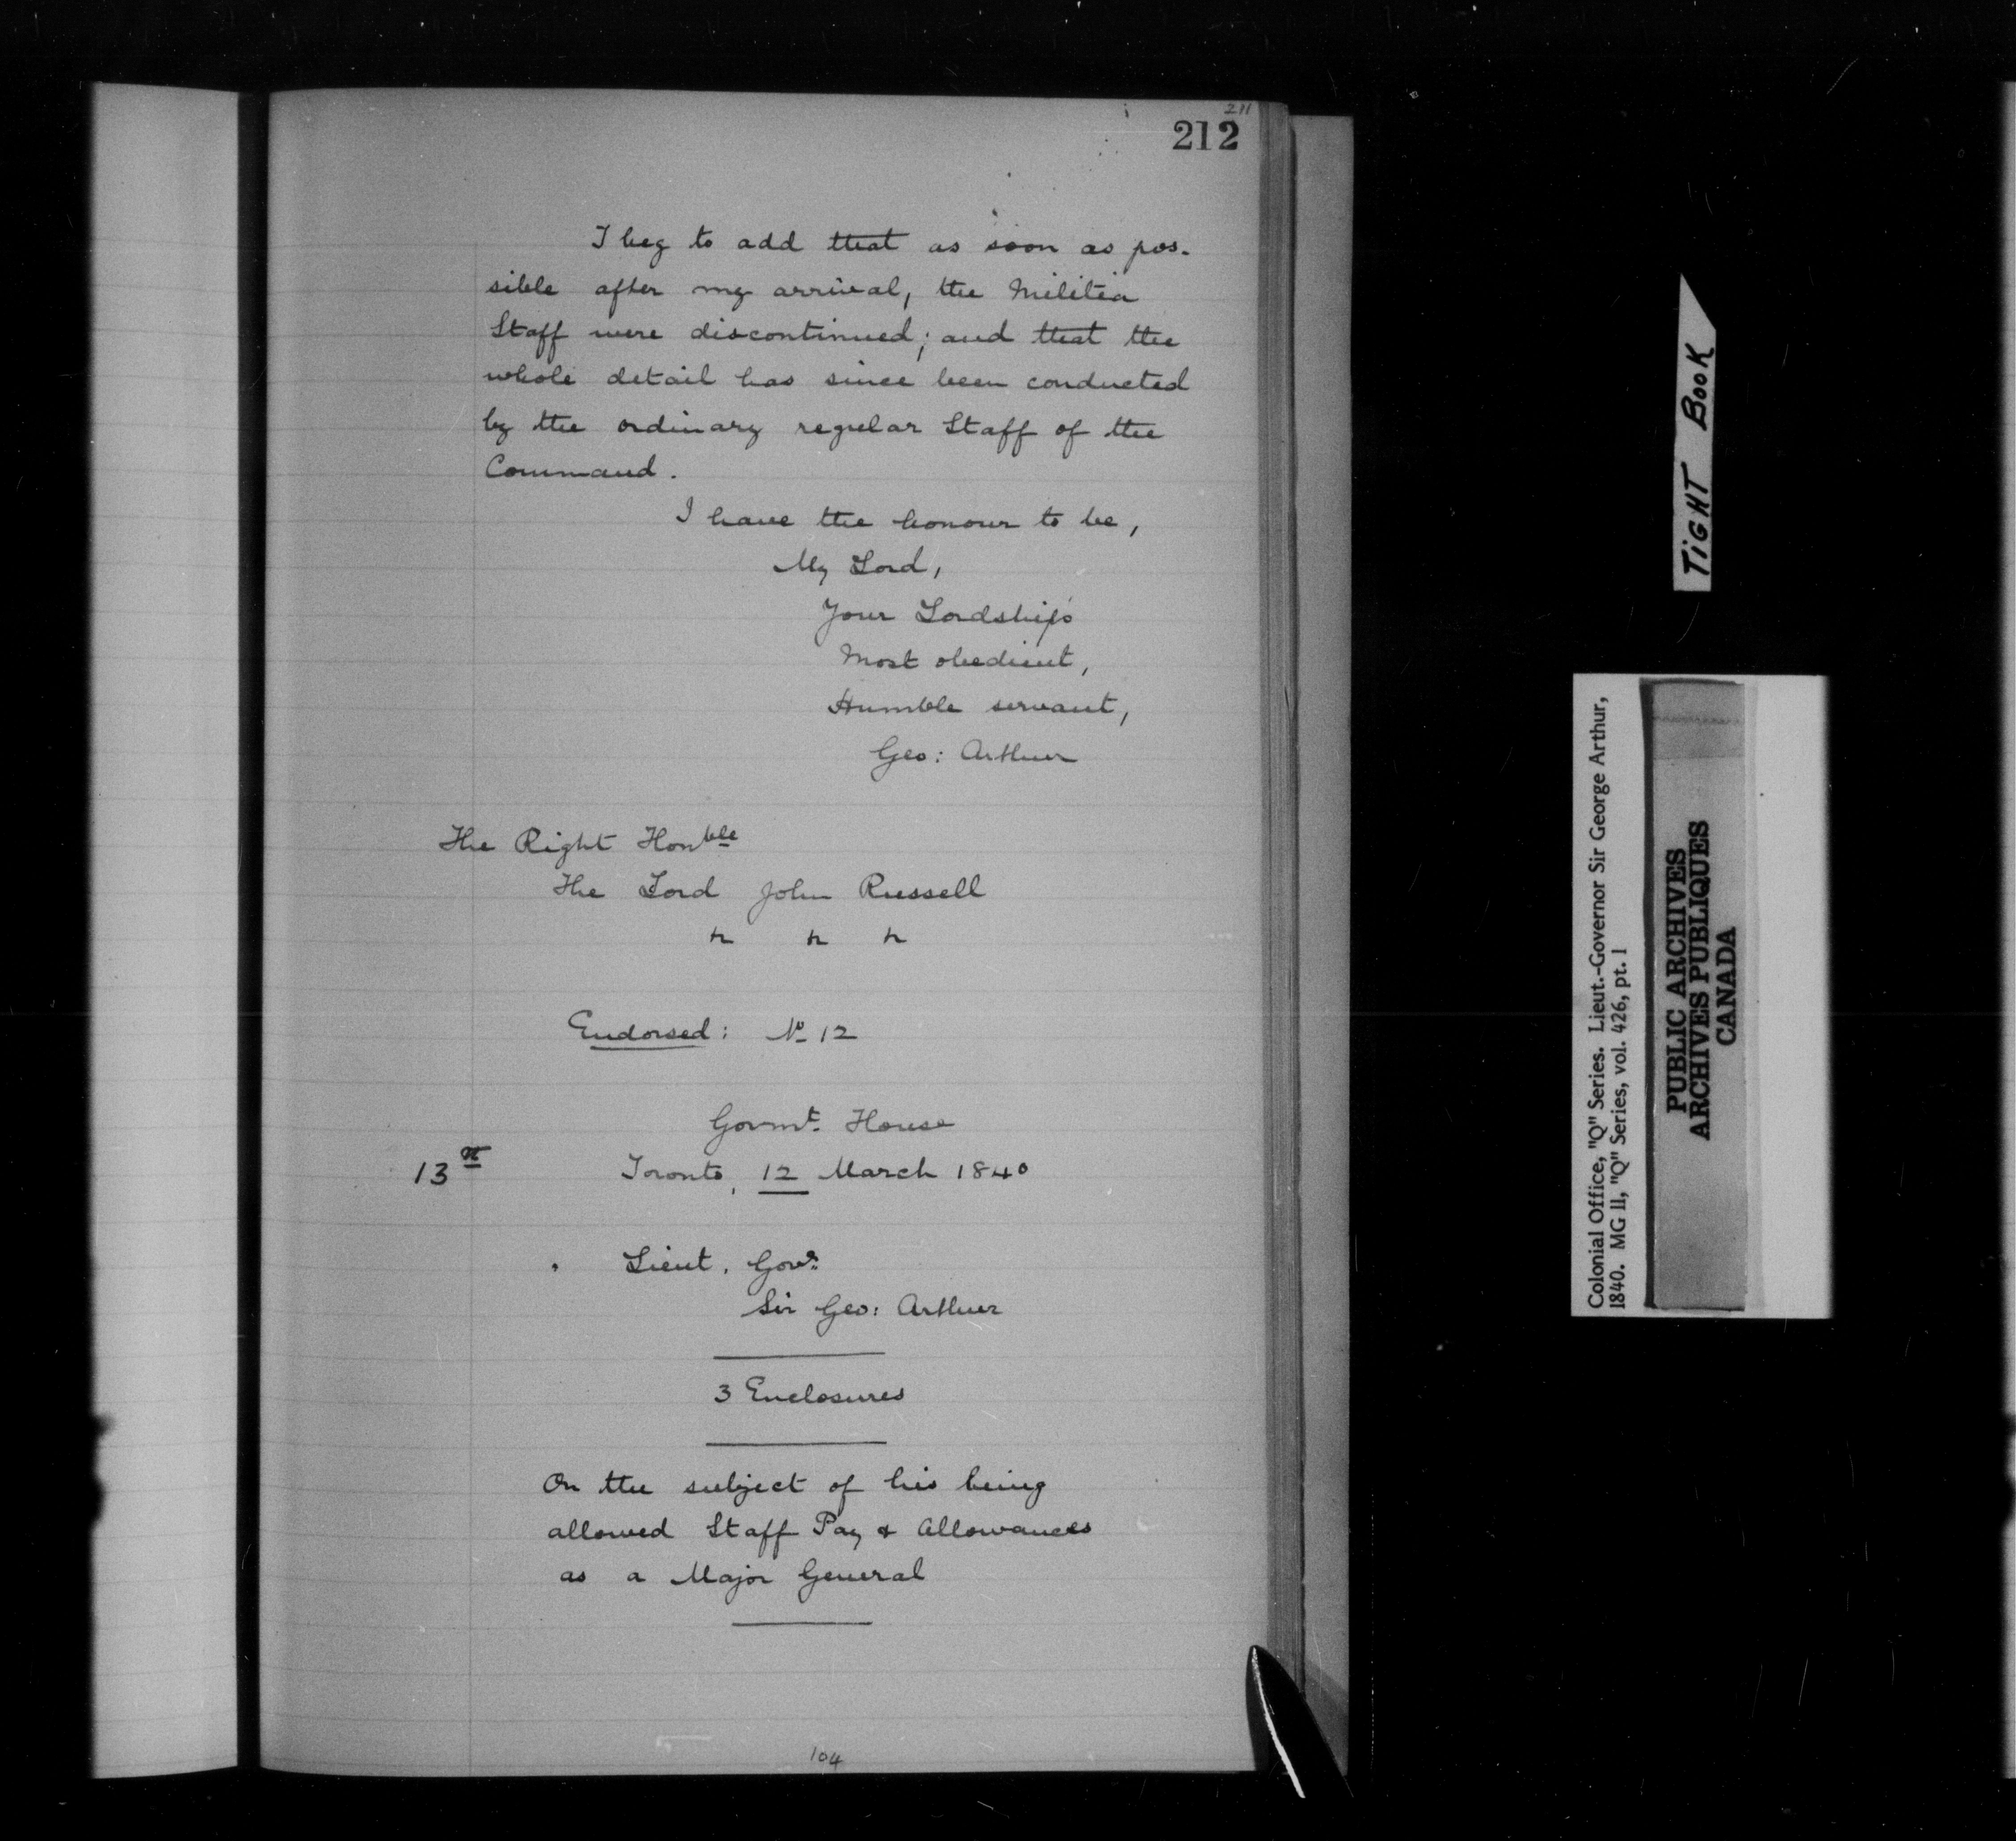 211
212
I beg to add that as soon as pos-
sible after my arrival, the Militia
Staff were discontinued; and that the
whole detail has since been conducted
by the ordinary regular Staff of the
Command.
I have the honour to be,
My Lord,
Your Lordship's
Most obedient,
Humble servant,
Geo: Arthur
The Right Honble
The Lord John Russell
Endorsed: No 12
Govmt. House
13
Toronto, 12 March 1840
Lieut. Govr.
Sir Geo: Arthur
3 Enclosures
On the subject of his being
allowed Staff Pay & Allowances
as a Major General
104
TIGHT BOOK
Colonial Office, "Q" Series. Lieut.-Governor Sir George Arthur,
1840. MG 11, "Q" Series, vol. 426, pt. 1
PUBLIC ARCHIVES
ARCHIVES PUBLIQUES
CANADA